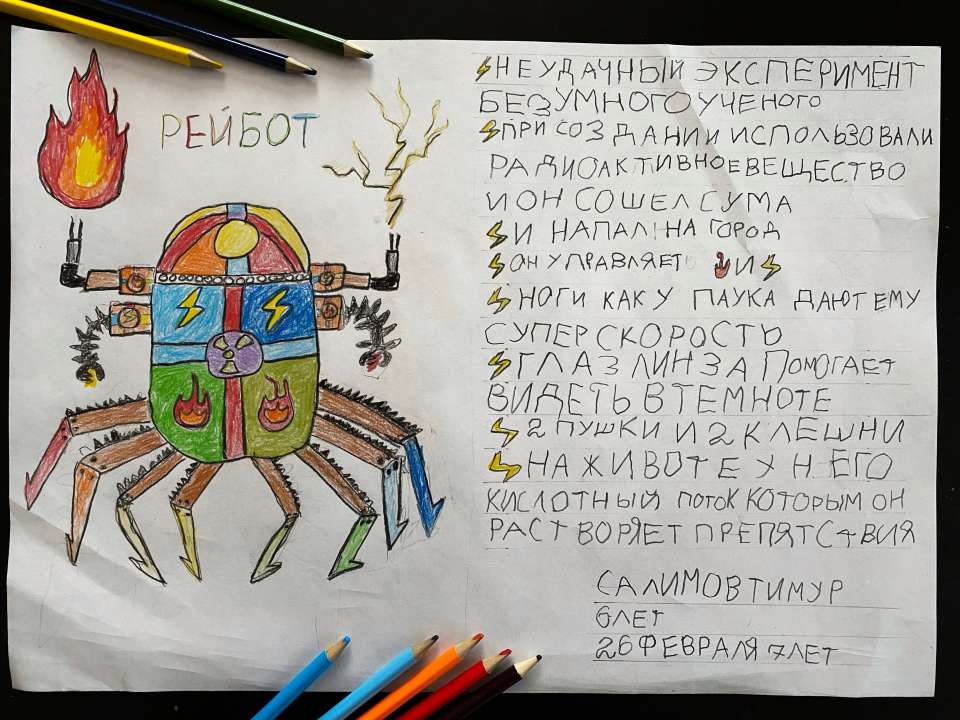 РЕЙБОТ
НЕУДАЧНЫЙ ЭКСПЕРИМЕНТ
БЕЗУМНОГО УЧЕНОГО
ПРИ СОЗДАНИИ ИСПОЛЬЗОВАЛИ
РАДИОАКТИВНОЕ ВЕЩЕСТВО
И ОН СОШЕЛ СУМА
И НАПАЛ НА ГОРОД
ОН УПРАВЛЯЕТ И
НОГИ КАК У ПАУКА ДАЮТ ЕМУ
СУПЕР СКОРОСТЬ
ГЛАЗ ЛИНЗА ПОМОГАЕТ
ВИДЕТЬ В ТЕМНОТЕ
2 ПУШКИ И 2 КЛЕШНИ
НА ЖИВОТЕ У НЕГО
КИСЛОТНЫЙ ПОТОК КОТОРЫМ ОН
РАСТВОРЯЕТ ПРЕПЯТСТВИЯ
САЛИМОВ ТИМУР
6 ЛЕТ
26 ФЕВРАЛЯ 7 ЛЕТ